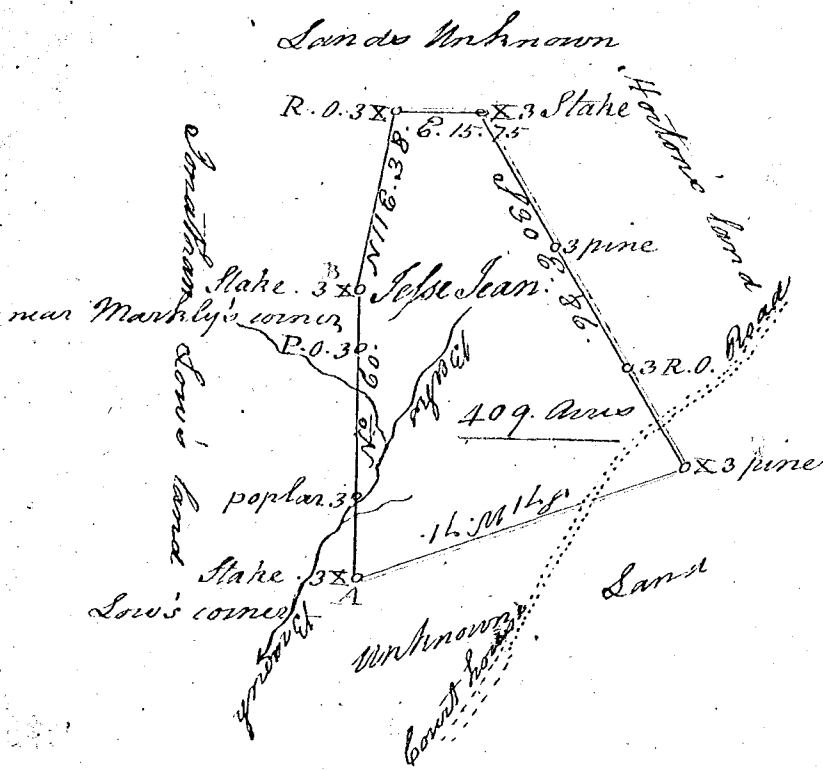 Lands Unknown
R.O. 3X
X.3 Stake
E. 15.75
Horton's land
N11E.38.
Jonathan Low's land
3 pine
Stake. 3X B
Jesse Jean.
near Markly's corner
P.O. 3
No. 60.
3 R.O.
Road
409. Acres
X 3 pine
poplar. 3
Stake. 3X
A
Low's corner
Branch
Unknown
Land
Court house